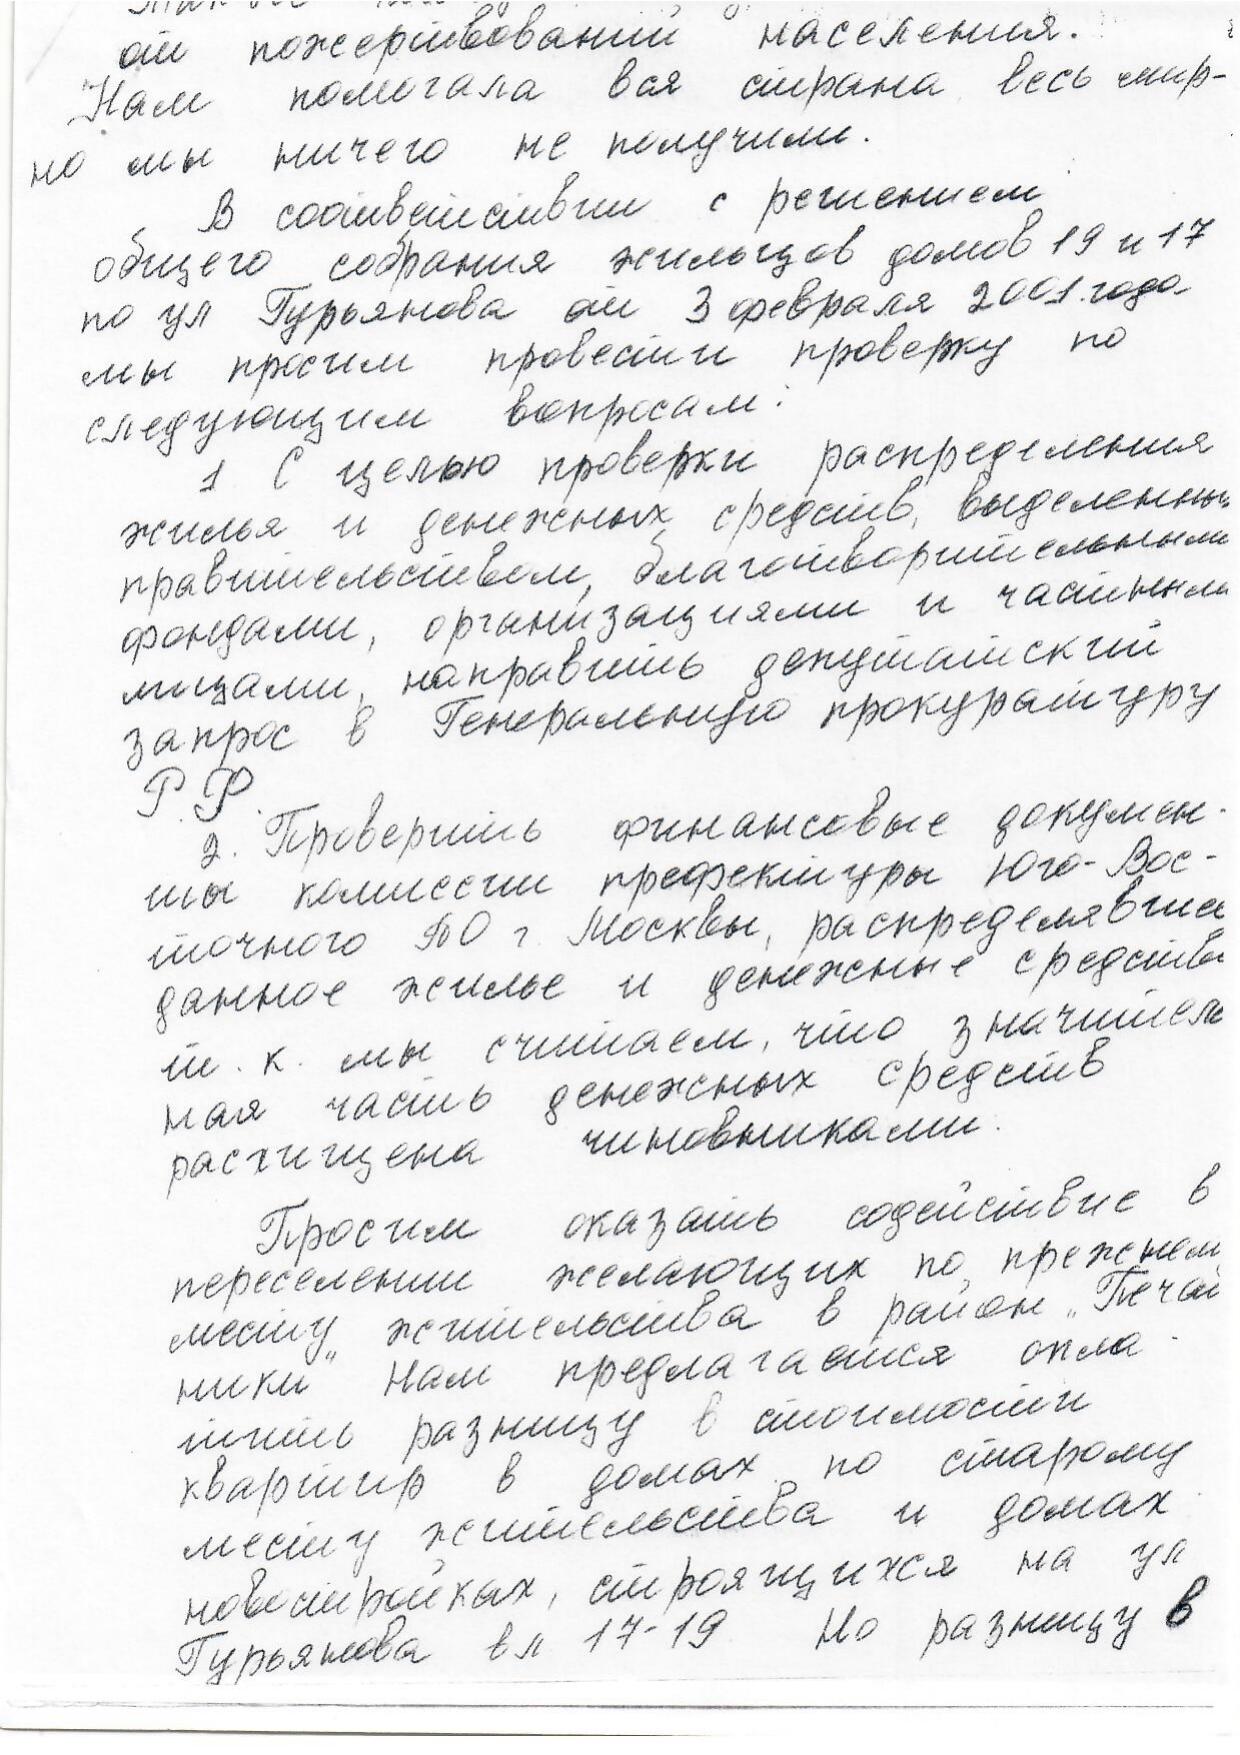 от пожертвований населения.
Нам помогала вся страна весь мир-
но мы ничего не получили.
В соответствии с решением
общего собрания жильцов домов 19 и 17
по ул Гурьянова от 3 февраля 2001 года
мы просим провести проверку по
следующим вопросам:
1 С целью проверки распределения
жилья и денежных средств, выделенных
правительством, благотворительными
фондами, организациями и частными
лицами, направить депутатский
запрос в Генеральную прокуратуру
Р.Ф.
2. Проверить финансовые докумен-
ты комиссии префектуры Юго-Вос-
точного АО г. Москвы, распределявшей
данное жилье и денежные средства
т. к. мы считаем, что значитель
ная часть денежных средств
расхищена чиновниками.
Просим оказать содействие в
переселении желающих по прежнему
месту жительства в район "Печат
ники" Нам предлагается опла-
тить разницу в стоимости
квартир в домах по старому
месту жительства и домах
новостройках, строящихся на ул
Гурьянова вл 17-19 Но разницу в